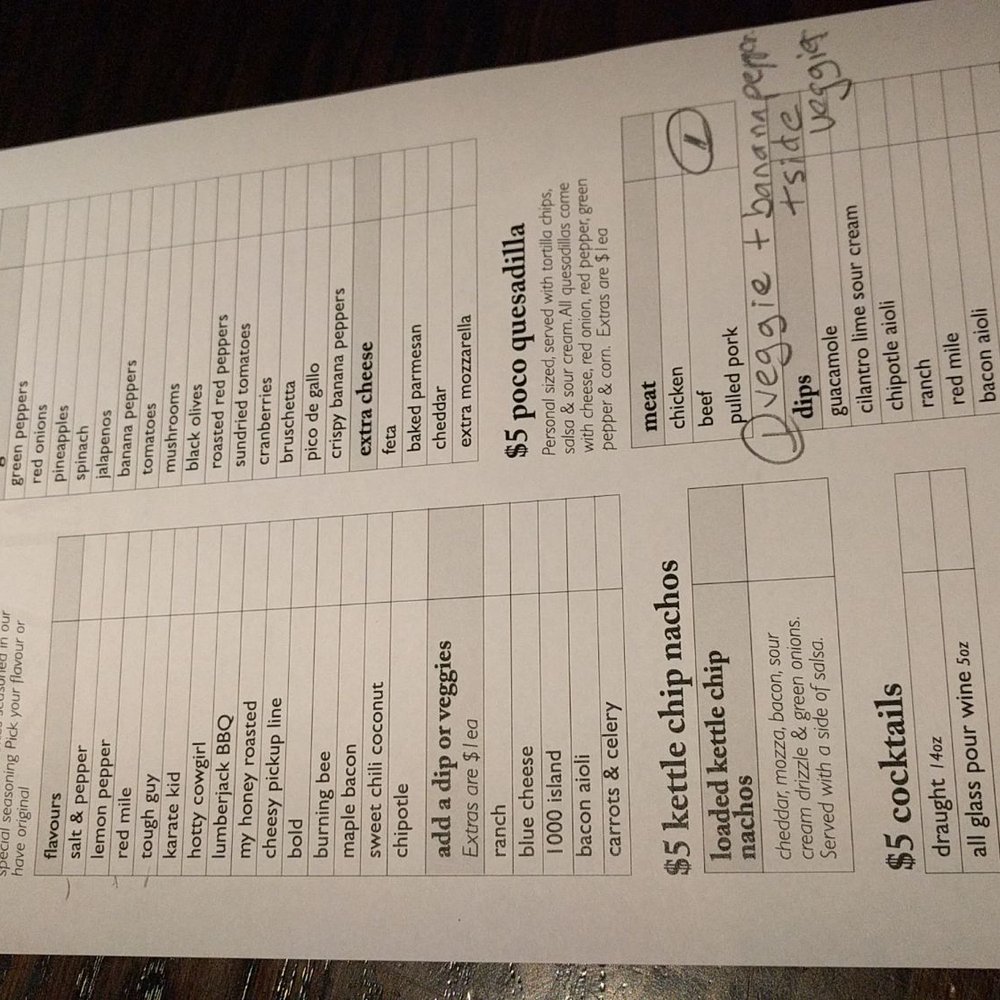 special seasoning Pick your flavour or
have original
flavours
salt & pepper
lemon pepper
red mile
tough guy
karate kid
hotty cowgirl
lumberjack BBQ
my honey roasted
cheesy pickup line
bold
burning bee
maple bacon
sweet chili coconut
chipotle
add a dip or veggies
Extras are $1ea
ranch
blue cheese
1000 island
bacon aioli
carrots & celery
$5 kettle chip nachos
loaded kettle chip
nachos
cheddar, mozza, bacon, sour
cream drizzle & green onions.
Served with a side of salsa.
$5 cocktails
draught 14oz
all glass pour wine 5oz
green peppers
red onions
pineapples
spinach
jalapenos
banana peppers
tomatoes
mushrooms
black olives
roasted red peppers
sundried tomatoes
cranberries
bruschetta
pico de gallo
crispy banana peppers
extra cheese
feta
baked parmesan
cheddar
extra mozzarella
$5 poco quesadilla
Personal sized, served with tortilla chips,
salsa & sour cream. All quesadillas come
with cheese, red onion, red pepper, green
pepper & corn. Extras are $1ea
meat
chicken
beef 1
pulled pork
1 veggie + banana pepper
+ side
veggie
dips
guacamole
cilantro lime sour cream
chipotle aioli
ranch
red mile
bacon aioli